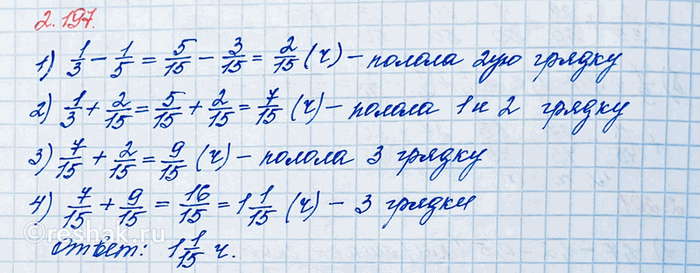 2.197.
1) 1/3 - 1/5 = 5/15 - 3/15 = 2/15 (ч) - полола 2ую грядку
2) 1/3 + 2/15 = 5/15 + 2/15 = 7/15 (ч) - полола 1 и 2 грядку
3) 7/15 + 2/15 = 9/15 (ч) - полола 3 грядку
4) 7/15 + 9/15 = 16/15 = 1 1/15 (ч) - 3 грядки
Ответ: 1 1/15 ч.
©reshak.ru